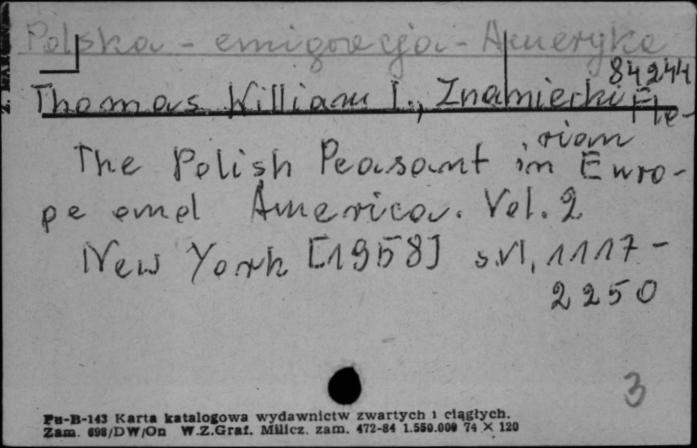 Polska - emigracja - Ameryka
84244
Thomas William I., Znaniecki Flo-
rian
The Polish Peasant in Euro-
pe and America. Vol. 2
New York [1958] s. VI, 1117-
2250
3
Pu-B-143 Karta katalogowa wydawnictw zwartych i ciągłych.
Zam. 698/DW/On W.Z.Graf. Milicz. zam. 472-84 1.550.000 74 × 120